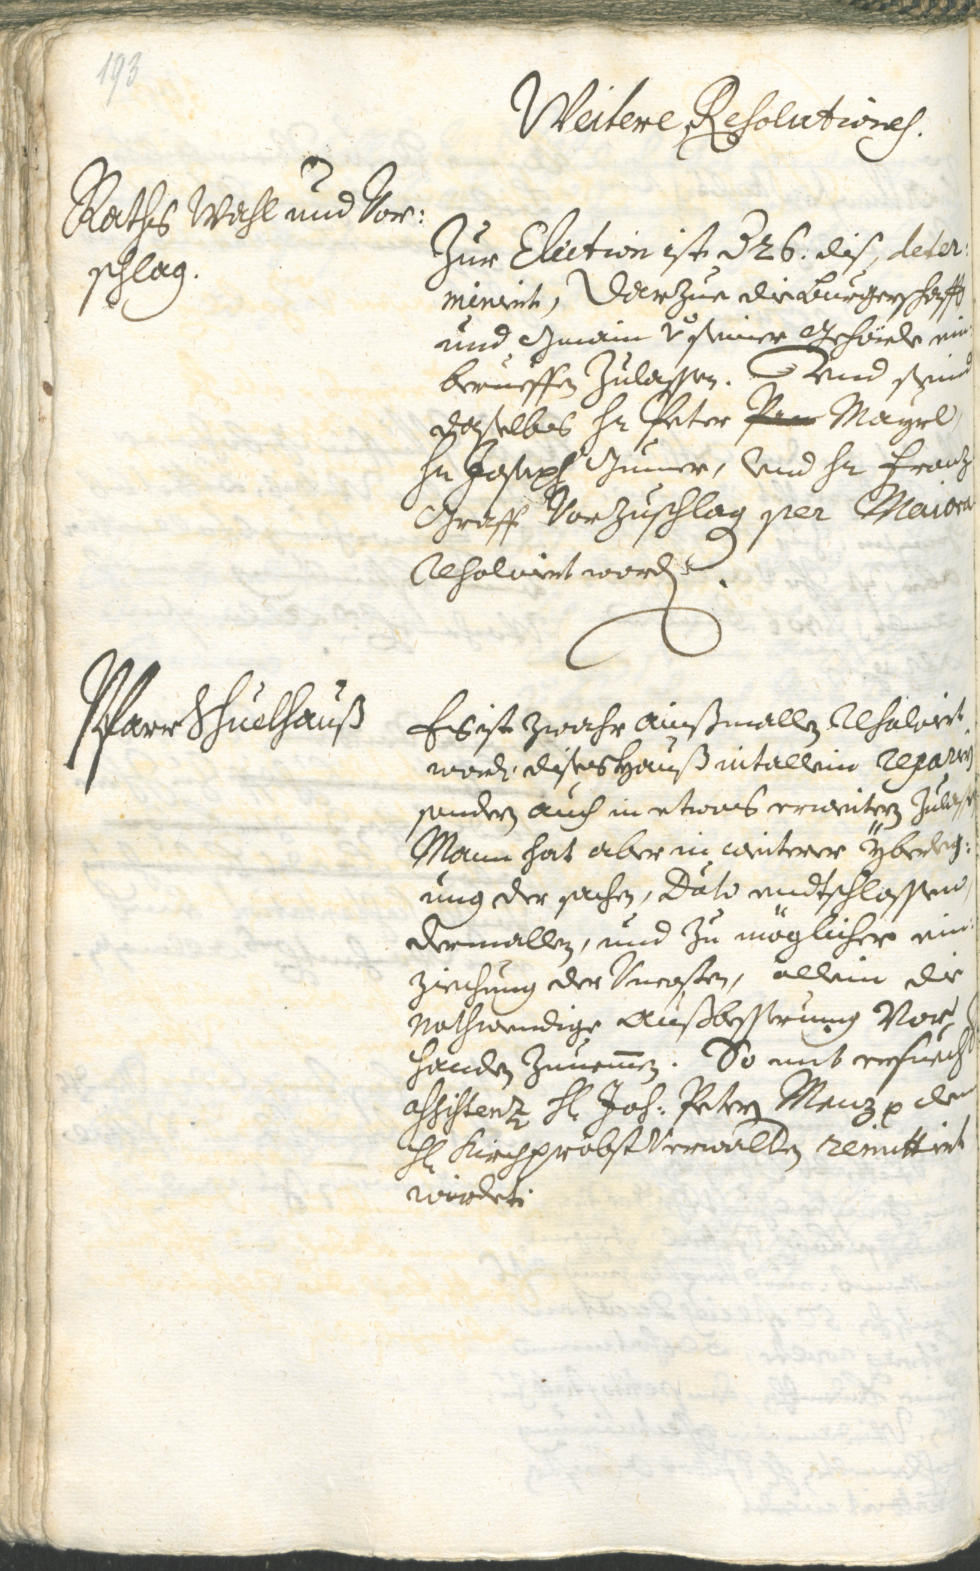 193
Weitere Resolutiones.
Raths Wahl und Vor:
schlag.
Zur Election ist d 26: dis, deter:
minirt, Darzue die Burgerschafft
und Gmain seiner Gehörde ein
berueffen Zulassen. Und seind
daselbs hr Peter Mayrl,
hr Joseph Gumer, und hr Franz
Graff Vorzuschlag per Maiora
Resolvirt word.
Pfarr Schuelhauß
Es ist zwahr ainßmallen Resolvirt
word, dises Hauß nit allein repariern
sondern auch in etwas erweitern Zulassen
Mann hat aber in weiterer Überleg:
ung der sachen, Dato endtschlossen,
dermallen, und zu möglicher ein
ziechung der Uncosten, allein die
nothwendige Außbesserung Vor
handen Zunemen. So mit ersuech
assistenz hl Joh: Petern Menz den
hl Kirchprobst Verwaltern remittirt
wirdet.